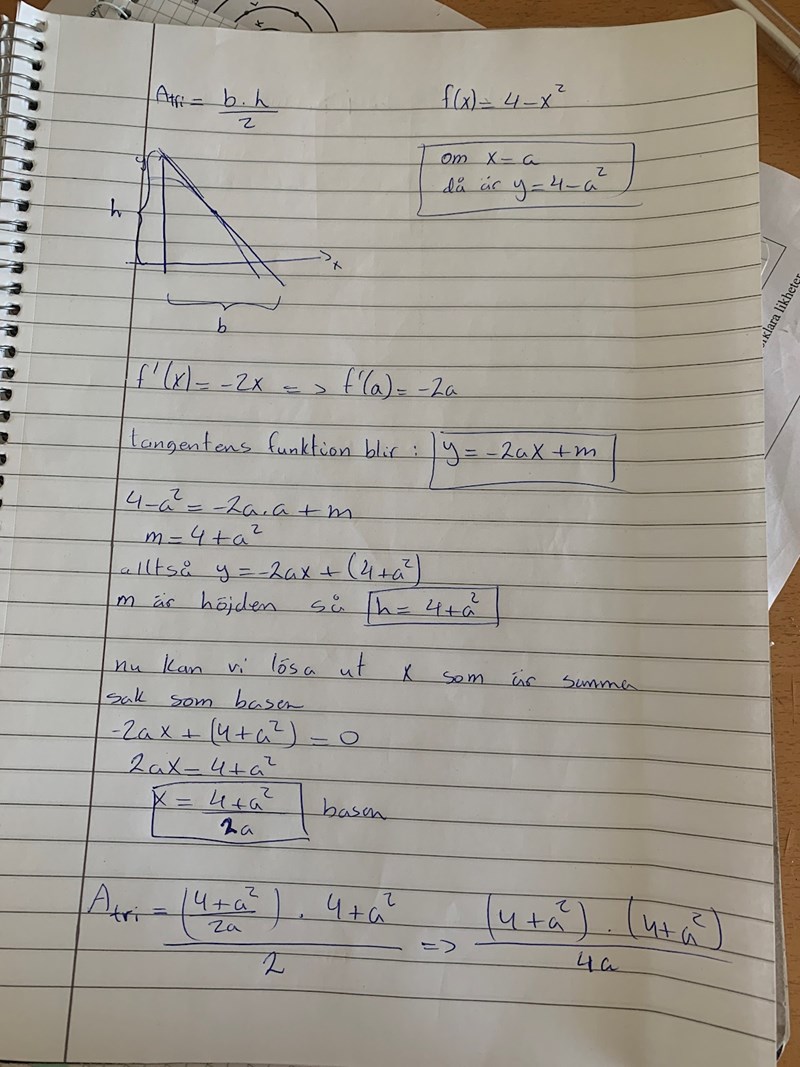 A_tri = b·h/2
f(x) = 4-x²
om x = a
då är y = 4-a²
h
x
b
f'(x) = -2x => f'(a) = -2a
tangentens funktion blir: y = -2ax + m
4-a² = -2a·a + m
m = 4+a²
alltså y = -2ax + (4+a²)
m är höjden så h = 4+a²
nu kan vi lösa ut x som är samma
sak som basen
-2ax + (4+a²) = 0
2ax = 4+a²
x = 4+a²/2a basen
A_tri = (4+a²/2a) · 4+a² / 2 => (4+a²) · (4+a²) / 4a
klara likheter